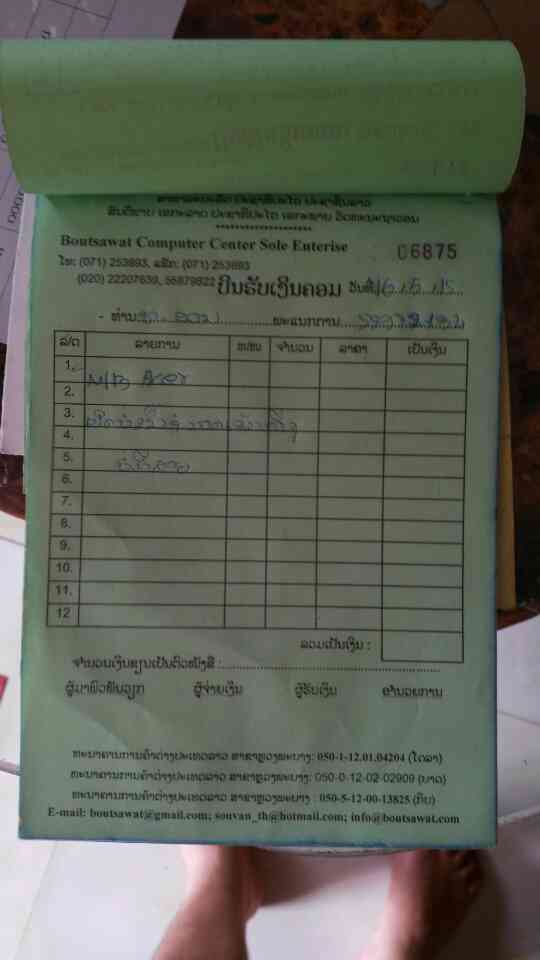 ສາທາລະນະລັດ ປະຊາທິປະໄຕ ປະຊາຊົນລາວ
ສັນຕິພາບ ເອກະລາດ ປະຊາທິປະໄຕ ເອກະພາບ ວັດທະນະຖາວອນ
********************
Boutsawat Computer Center Sole Enterise 06875
ໂທ: (071) 253893, ແຟັກ: (071) 253893
(020) 22207639, 55679822 ບິນຮັບເງິນຄອມ ວັນທີ 16.5.15
- ທ່ານ ພະແນກການ
ລ/ດ ລາຍການ ຫ/ໜ ຈຳນວນ ລາຄາ ເປັນເງິນ
1. M/B Acer
2.
3.
4.
5.
6.
7.
8.
9.
10.
11.
12
ລວມເປັນເງິນ :
ຈຳນວນເງິນຂຽນເປັນຕົວໜັງສື :
ຜູ້ມາພົວພັນວຽກ ຜູ້ຈ່າຍເງິນ ຜູ້ຮັບເງິນ ອຳນວຍການ
ທະນາຄານການຄ້າຕ່າງປະເທດລາວ ສາຂາຫຼວງພະບາງ: 050-1-12.01.04204 (ໂດລາ)
ທະນາຄານການຄ້າຕ່າງປະເທດລາວ ສາຂາຫຼວງພະບາງ: 050-0-12-02-02909 (ບາດ)
ທະນາຄານການຄ້າຕ່າງປະເທດລາວ ສາຂາຫຼວງພະບາງ : 050-5-12-00-13825 (ກີບ)
E-mail: boutsawat@gmail.com; souvan_th@hotmail.com; info@boutsawat.com